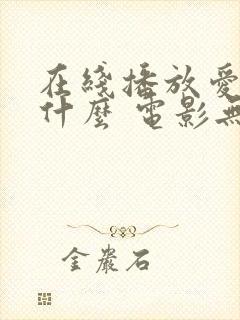 在綫播放愛
什麼 電影無
金嚴石